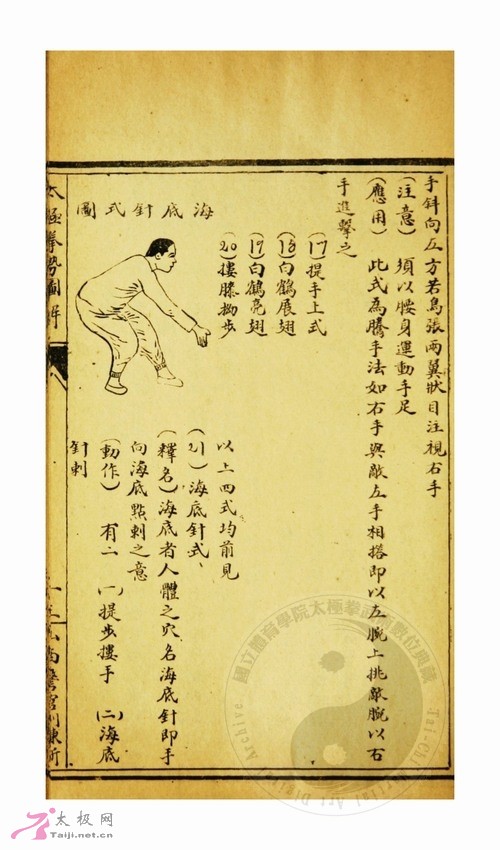 手斜向左方若鳥張兩翼狀目注視右手
(注意) 須以腰身運動手足
(應用) 此式為騰手法如右手與敵左手相搭即以左腕上挑敵腕以右
手進擊之
(17)提手上式
(18)白鶴展翅
(19)白鶴亮翅
(20)摟膝拗步
以上四式均前見
(21)海底針式、
(釋名)海底者人體之穴名海底針即手
向海底點刺之意
(動作) 有二 (一)提步摟手 (二)海底
針刺
海底針式圖
太極拳勢圖解
國立體育學院太極拳
數位典藏
Tai-Chi Martial Art Digital Archive
太极网
Taiji.net.cn